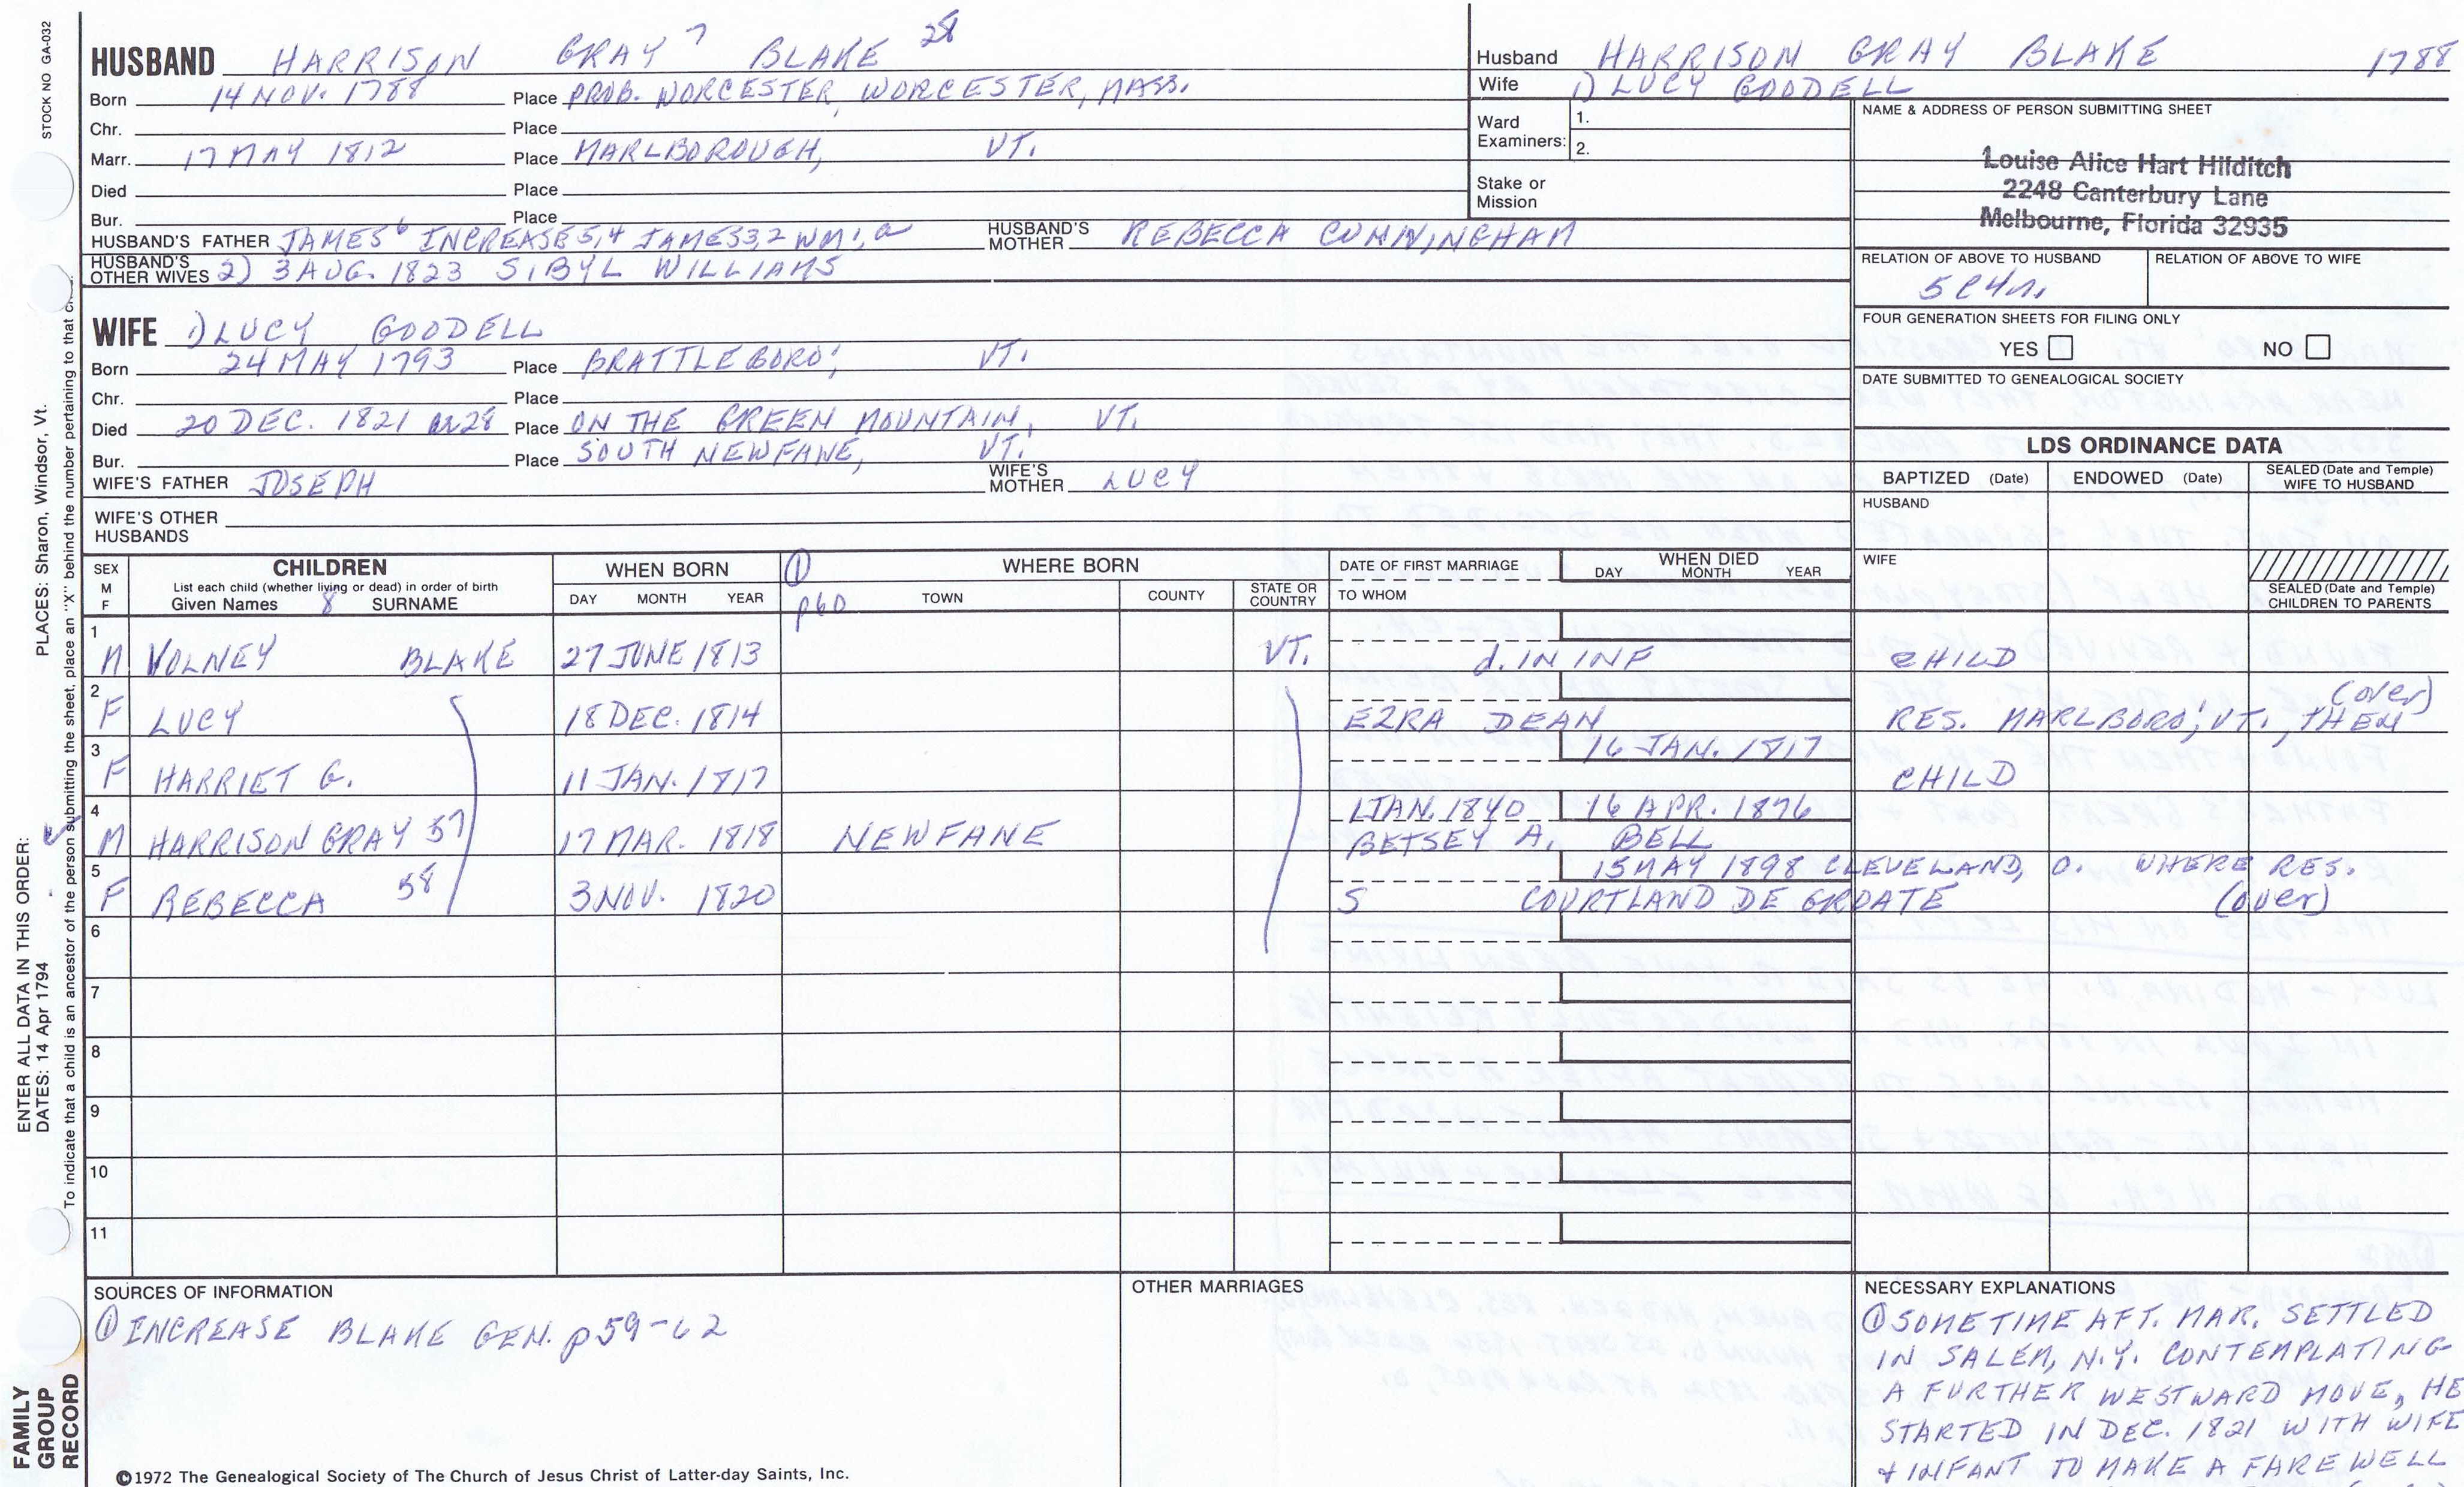 STOCK NO GA-032
HUSBAND HARRISON GRAY 7 BLAKE 28
Born 14 NOV. 1788 Place PROB. WORCESTER, WORCESTER, MASS.
Chr. Place
Marr. 17 MAY 1812 Place MARLBOROUGH, VT.
Died Place
Bur. Place
HUSBAND'S FATHER JAMES 6 INCREASE 5,4 JAMES 3,2 WM 1, a HUSBAND'S MOTHER REBECCA CUNNINGHAM
HUSBAND'S OTHER WIVES 2) 3 AUG. 1823 SIBYL WILLIAMS
Husband HARRISON GRAY BLAKE 1788
Wife 1) LUCY GOODELL
Ward Examiners: 1.
2.
Stake or Mission
NAME & ADDRESS OF PERSON SUBMITTING SHEET
Louise Alice Hart Hilditch
2248 Canterbury Lane
Melbourne, Florida 32935
RELATION OF ABOVE TO HUSBAND RELATION OF ABOVE TO WIFE
5C4r.
FOUR GENERATION SHEETS FOR FILING ONLY
YES NO
DATE SUBMITTED TO GENEALOGICAL SOCIETY
WIFE 1) LUCY GOODELL
Born 24 MAY 1793 Place BRATTLEBORO', VT.
Chr. Place
Died 20 DEC. 1821 or 28 Place ON THE GREEN MOUNTAIN, VT.
Bur. Place SOUTH NEWFANE, VT.
WIFE'S FATHER JOSEPH WIFE'S MOTHER LUCY
WIFE'S OTHER HUSBANDS
LDS ORDINANCE DATA
BAPTIZED (Date) ENDOWED (Date) SEALED (Date and Temple) WIFE TO HUSBAND
HUSBAND
WIFE
SEALED (Date and Temple) CHILDREN TO PARENTS
SEX M F CHILDREN List each child (whether living or dead) in order of birth Given Names 8 SURNAME
WHEN BORN DAY MONTH YEAR
① p60 WHERE BORN TOWN COUNTY STATE OR COUNTRY
DATE OF FIRST MARRIAGE TO WHOM
WHEN DIED DAY MONTH YEAR
1 M VOLNEY BLAKE 27 JUNE 1813 VT. d. IN INF CHILD
2 F LUCY 18 DEC. 1814 EZRA DEAN RES. MARLBORO', VT., THEN (over)
3 F HARRIET G. 11 JAN. 1817 16 JAN. 1817 CHILD
4 M HARRISON GRAY 57 17 MAR. 1818 NEWFANE 1 JAN. 1840 16 APR. 1876
BETSEY A. BELL
5 F REBECCA 58 3 NOV. 1820 15 MAY 1898 CLEVELAND, O. WHERE RES.
S COURTLAND DE GROATE (over)
6
7
8
9
10
11
SOURCES OF INFORMATION
① INCREASE BLAKE GEN. p59-62
OTHER MARRIAGES
NECESSARY EXPLANATIONS
① SOMETIME AFT. MAR. SETTLED
IN SALEM, N.Y. CONTEMPLATING
A FURTHER WESTWARD MOVE, HE
STARTED IN DEC. 1821 WITH WIFE
+ INFANT TO MAKE A FAREWELL
©1972 The Genealogical Society of The Church of Jesus Christ of Latter-day Saints, Inc.
ENTER ALL DATA IN THIS ORDER:
DATES: 14 Apr 1794 PLACES: Sharon, Windsor, Vt.
To indicate that a child is an ancestor of the person submitting the sheet, place an "X" behind the number pertaining to that
FAMILY
GROUP
RECORD